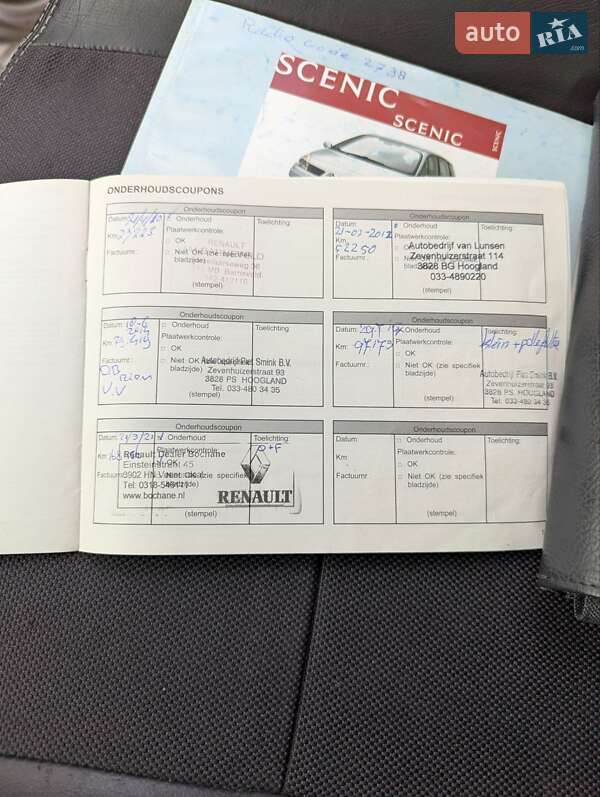 auto RIA.com
Radio code 2738
SCENIC
SCENIC
SCENIC
ONDERHOUDSCOUPONS
Onderhoudscoupon
Datum:
Km:
Factuurnr.:
□ Onderhoud
Plaatwerkcontrole:
□ OK
□ Niet OK (zie specifiek bladzijde)
Toelichting:
RENAULT
(stempel)
Onderhoudscoupon
Datum: 21-03-2012
Km: 52250
Factuurnr.:
Onderhoud
Plaatwerkcontrole:
□ OK
Toelichting:
Autobedrijf van Lunsen
Zevenhuizerstraat 114
3828 BG Hoogland
033-4890220
(stempel)
Onderhoudscoupon
Datum:
Km:
Factuurnr.:
OB
V.V
□ Onderhoud
Plaatwerkcontrole:
□ OK
□ Niet OK (zie specifiek bladzijde)
Toelichting:
Autobedrijf Piet Smink B.V.
Zevenhuizerstraat 93
3828 PS HOOGLAND
Tel. 033-480 34 35
(stempel)
Onderhoudscoupon
Datum:
Km: 97173
Factuurnr.:
□ Onderhoud
Plaatwerkcontrole:
□ OK
□ Niet OK (zie specifiek bladzijde)
Toelichting:
Autobedrijf Piet Smink B.V.
Zevenhuizerstraat 93
3828 PS HOOGLAND
Tel. 033-480 34 35
(stempel)
Onderhoudscoupon
Datum: 24/3/21
Km:
Factuurnr.:
Onderhoud
Plaatwerkcontrole:
□ OK
□ Niet OK (zie specifiek bladzijde)
Toelichting:
P+F
Renault Dealer Bochane
Einsteinstraat 45
3902 HN Veenendaal
www.bochane.nl
RENAULT
(stempel)
Onderhoudscoupon
Datum:
Km:
Factuurnr.:
□ Onderhoud
Plaatwerkcontrole:
□ OK
□ Niet OK (zie specifiek bladzijde)
Toelichting:
(stempel)